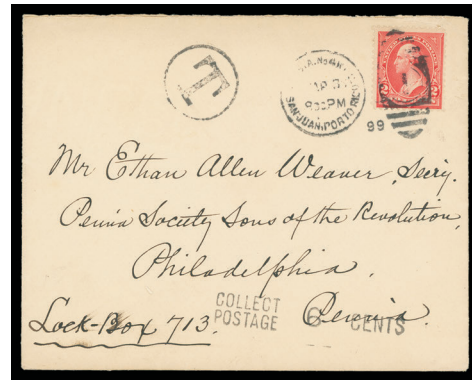 T
SAN JUAN, PORTO RICO
99
2 2
Mr Ethan Allen Weaver, Secry.
Penn'a Society Sons of the Revolution,
Philadelphia,
Penn'a.
Lock-Box 713.
COLLECT
POSTAGE 6 CENTS